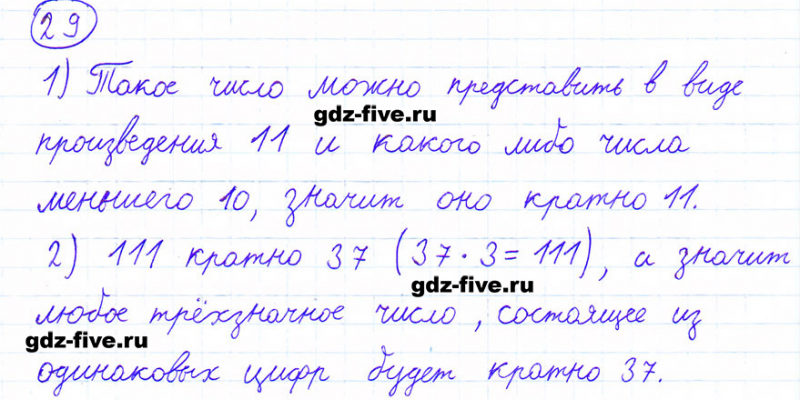 29
1) Такое число можно представить в виде
gdz-five.ru
произведения 11 и какого либо числа
меньшего 10, значит оно кратно 11.
2) 111 кратно 37 (37 · 3 = 111), а значит
gdz-five.ru
любое трёхзначное число, состоящее из
gdz-five.ru
одинаковых цифр будет кратно 37.